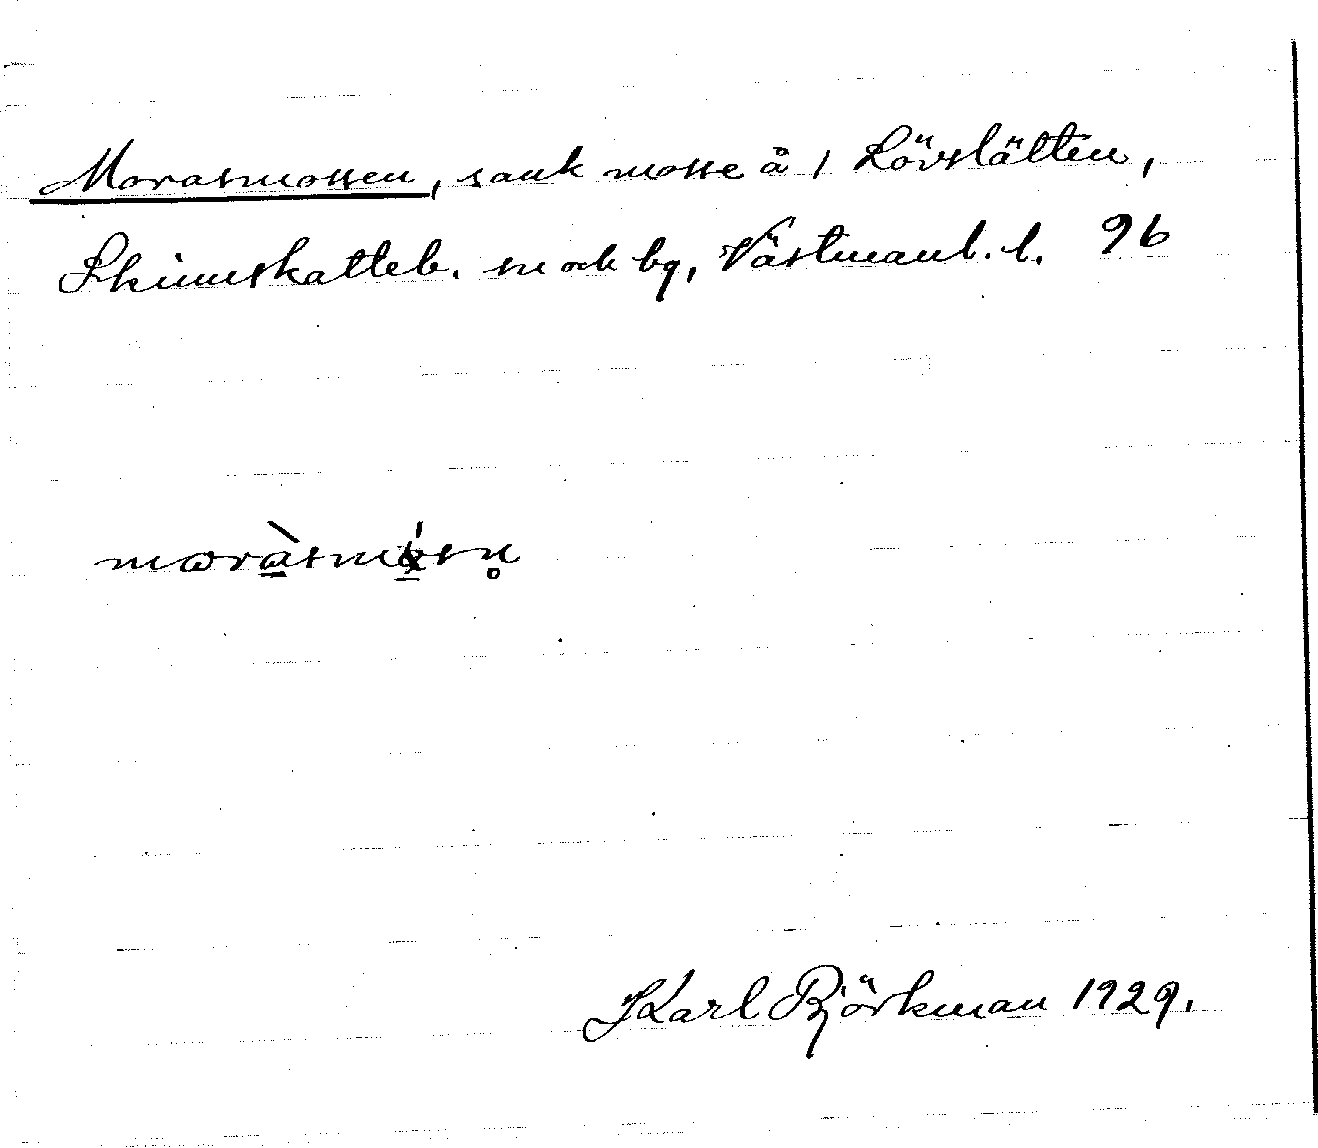 Morasmossen, sank mosse å 1 Lövslätten,
Skinnskatteb. sn och bg, Västmanl. l. 96
moràsmósn̥
Karl Björkman 1929.